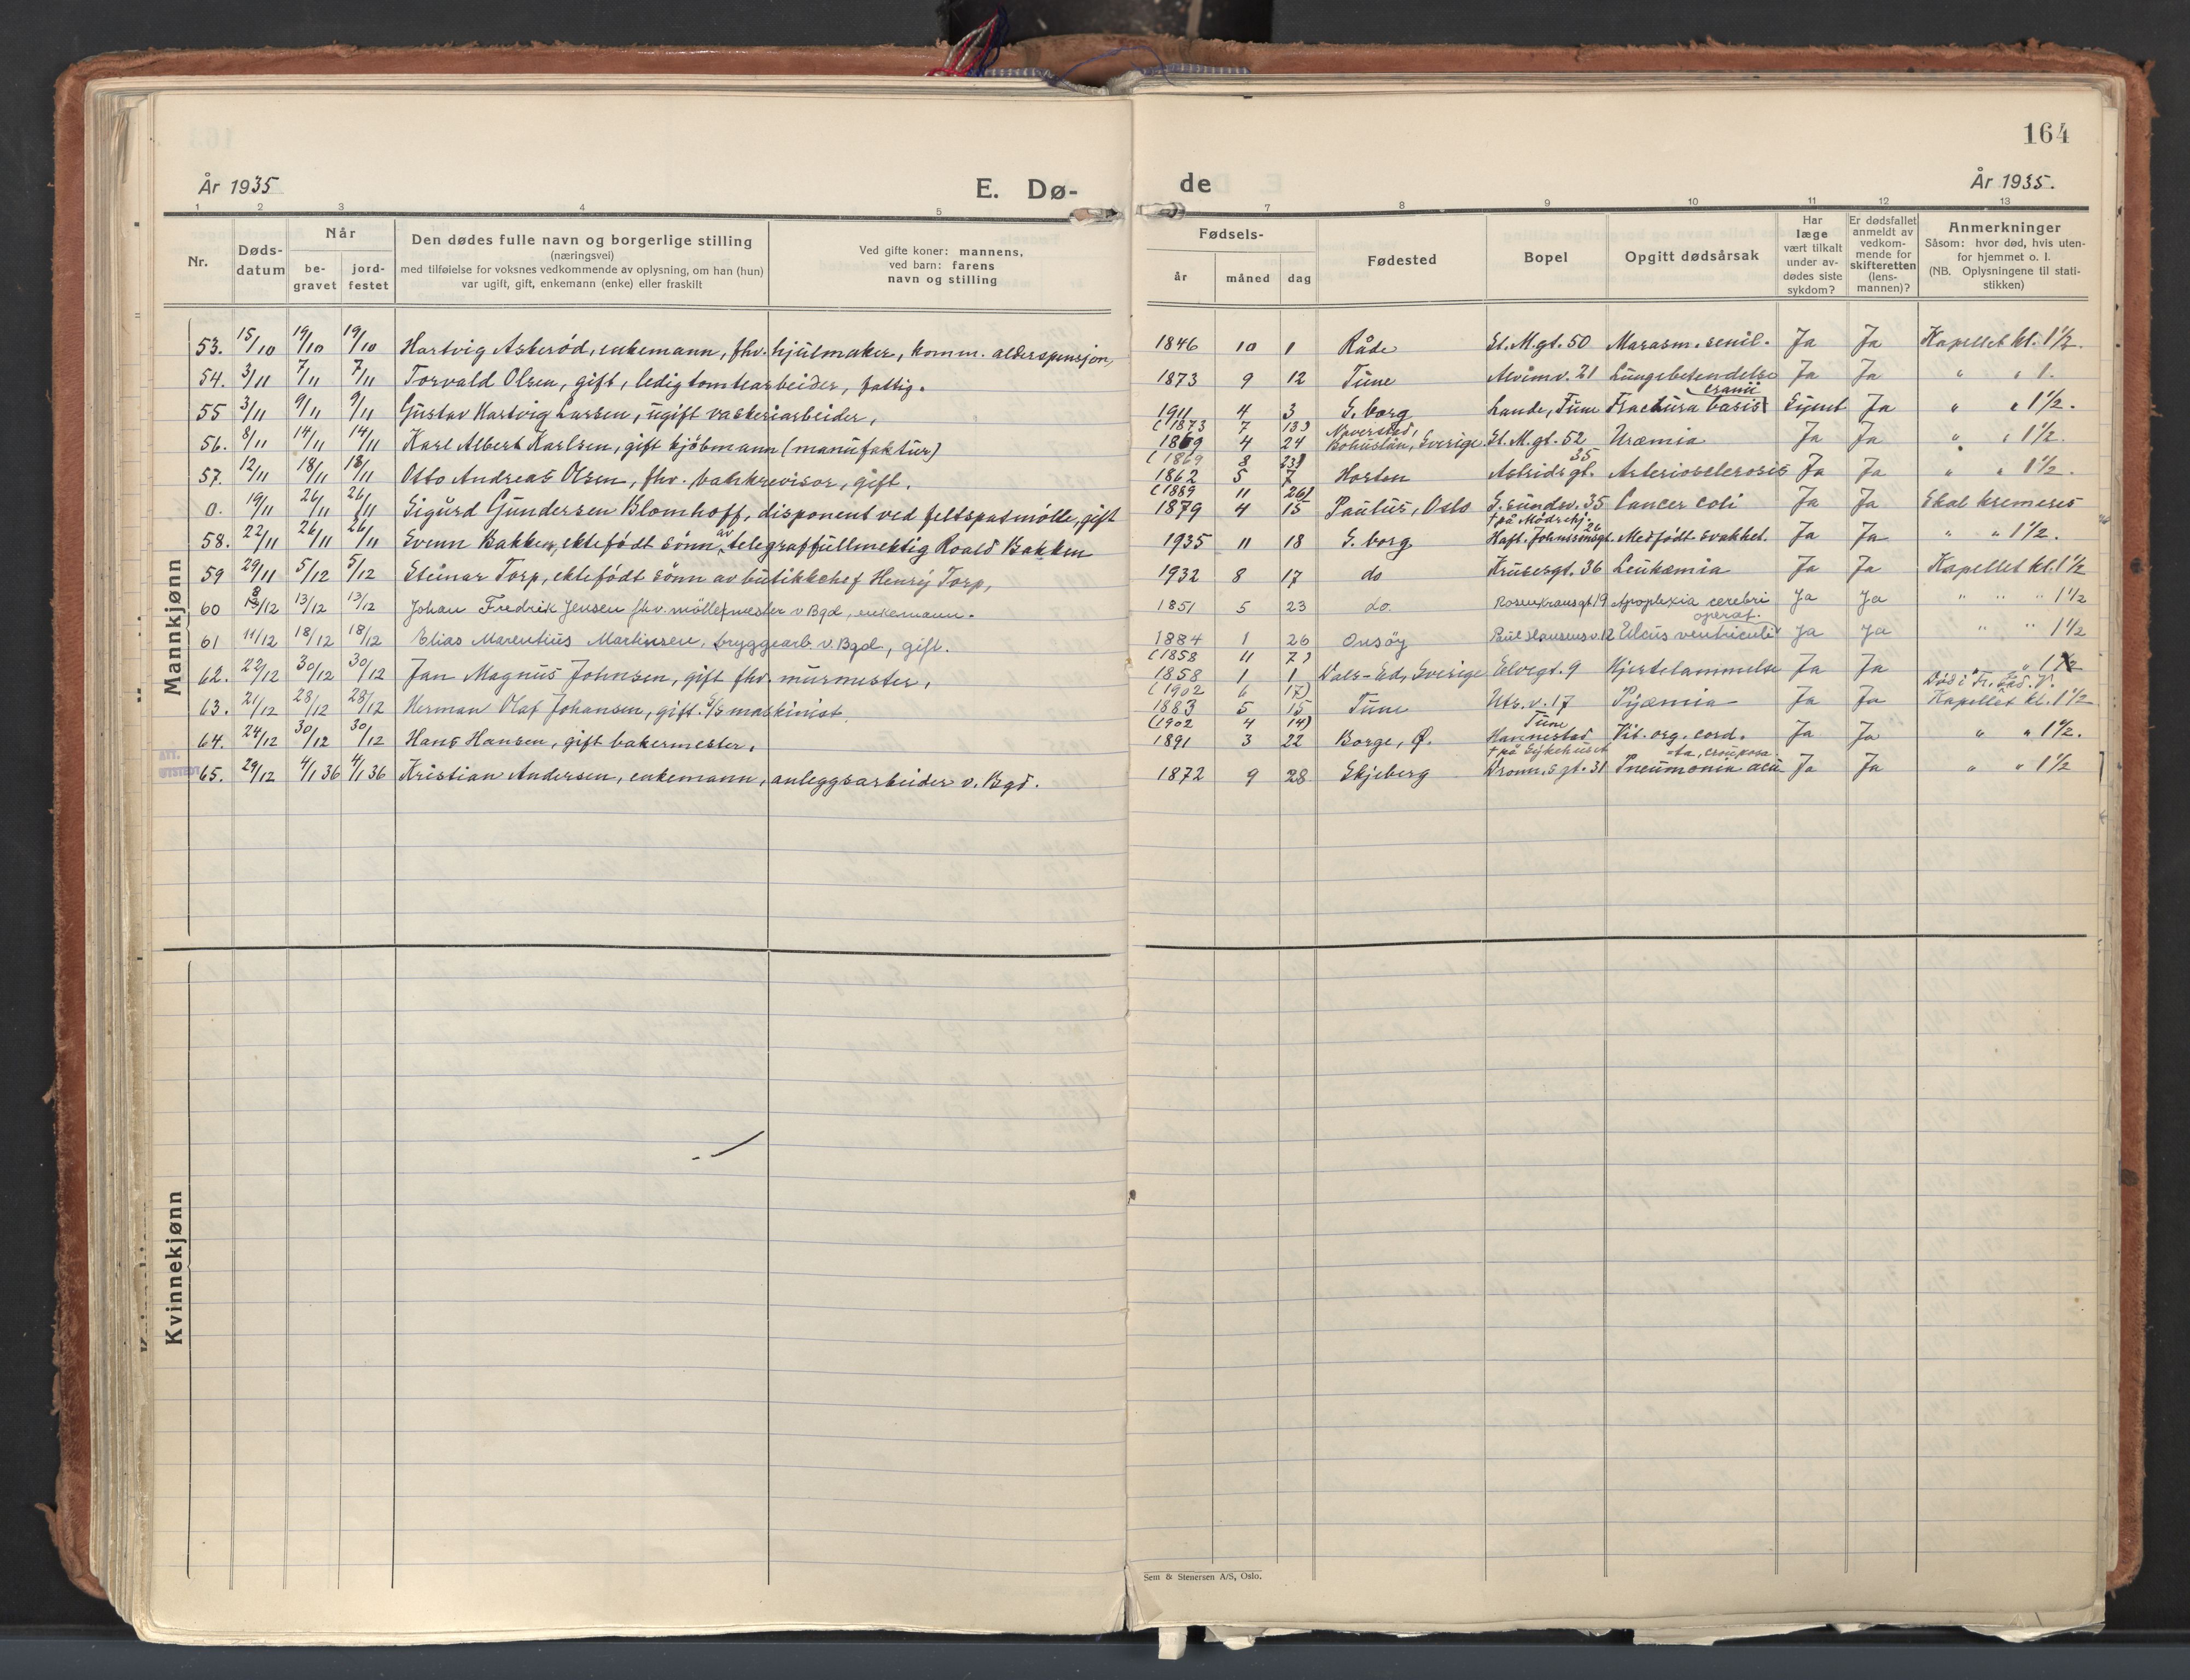 164
År 1935
E. Dø-
de
År 1935.
1 2 3 4 5 7 8 9 10 11 12 13
Nr.
Døds-
datum
Når
be-
gravet
jord-
festet
Den dødes fulle navn og borgerlige stilling
(næringsvei)
med tilføielse for voksnes vedkommende av oplysning, om han (hun)
var ugift, gift, enkemann (enke) eller fraskilt
Ved gifte koner: mannens,
ved barn: farens
navn og stilling
Fødsels-
år måned dag
Fødested
Bopel
Opgitt dødsårsak
Har
læge
vært tilkalt
under av-
dødes siste
sykdom?
Er dødsfallet
anmeldt av
vedkom-
mende for
skifteretten
(lens-
mannen)?
Anmerkninger
Såsom: hvor død, hvis uten-
for hjemmet o. l.
(NB. Oplysningene til stati-
stikken)
Mannkjønn
53. 15/10 19/10 19/10 Hartvig Asterød, enkemann, fhv. hjulmaker, komm. alderspensjon, 1846 10 1 Råde St. M.gt. 50 Marasm. senil. Ja Ja Kapellet kl. 1 1/2.
54. 3/11 7/11 7/11 Torvald Olsen, gift, ledig tomtearbeider, fattig. 1873 9 12 Tune Alvimv. 21 Lungebetendelse Ja Ja " " 1.
cranii
55 3/11 9/11 9/11 Gustav Hartvig Larsen, ugift vaskeriarbeider, 1911 4 3 S. borg Lande, Tune Fractura basis Ja " " 1 1/2.
(1873 7 13)
56. 8/11 14/11 14/11 Karl Albert Karlsen, gift kjöbmann (manufaktur) 1869 4 24 Bohuslän, Sverige St. M. gt. 52 Uræmia Ja Ja " " 1 1/2.
(1869 8 23) 35
57. 12/11 18/11 18/11 Otto Andreas Olsen, fhv. bankrevisor, gift. 1862 5 7 Horten Astridsgt. Arteriosclerosis Ja Ja " " 1 1/2.
(1889 11 26)
0. 19/11 26/11 26/11 Sigurd Gundersen Blomhoff, disponent ved feltspatmölle, gift 1879 4 15 Paulus, Oslo S. sundsv. 35 Cancer coli Ja Ja Skal kremeres
† på Mödrehj. 26
58. 22/11 26/11 26/11 Svenn Bakken, ektefødt sönn av telegraffullmektig Roald Bakken 1935 11 18 S. borg Haft. Johnsensgt. Medfödt svakhet. Ja Ja " " 1 1/2.
59 29/11 5/12 5/12 Steinar Torp, ektefødt sönn av butikkchef Henry Torp, 1932 8 17 do Krusesgt. 36 Leukæmia Ja Ja Kapellet kl. 1 1/2
60 8/12 13/12 13/12 Johan Fredrik Jensen fhv. möllermester v Bgd, enkemann. 1851 5 23 do. Rosenkransgt 19 Apoplexia cerebri Ja Ja " " " 1 1/2
operat.
61 11/12 18/12 18/12 Elias Marentius Martinsen, bryggearb. v. Bgd, gift. 1884 1 26 Onsöy Paul Hansensv. 12 Ulcus ventriculi Ja Ja " " " 1 1/2
(1858 11 7)
62. 22/12 30/12 30/12 Jan Magnus Johnsen, gift fhv. murmester, 1858 1 1 Dals-Ed, Sverige Elvegt. 9 Hjertelammelse Ja Ja " 1 1/2
(1902 6 17) Död i Fr. stad. V.
63. 21/12 28/12 28/12 Herman Olaf Johansen, gift. S/S maskinist 1883 5 15 Tune Uts. v. 17 Pyæmia Ja Ja Kapellet kl. 1 1/2
(1902 4 14) Tune
64. 24/12 30/12 30/12 Hans Hansen, gift bakermester, 1891 3 22 Borge, Ø. Hannestad Vit. org. cord. Ja Ja " " 1 1/2.
ATT.
UTSTEDT
† på Sykehuset =ta, crouposa
65. 29/12 4/1 36 4/1 36 Kristian Andersen, enkemann, anleggsarbeider v. Bgd. 1872 9 28 Skjeberg Dronn.s gt. 31 Pneumonia acu Ja Ja " " 1 1/2
Kvinnekjønn
Sem & Stenersen A/S, Oslo.